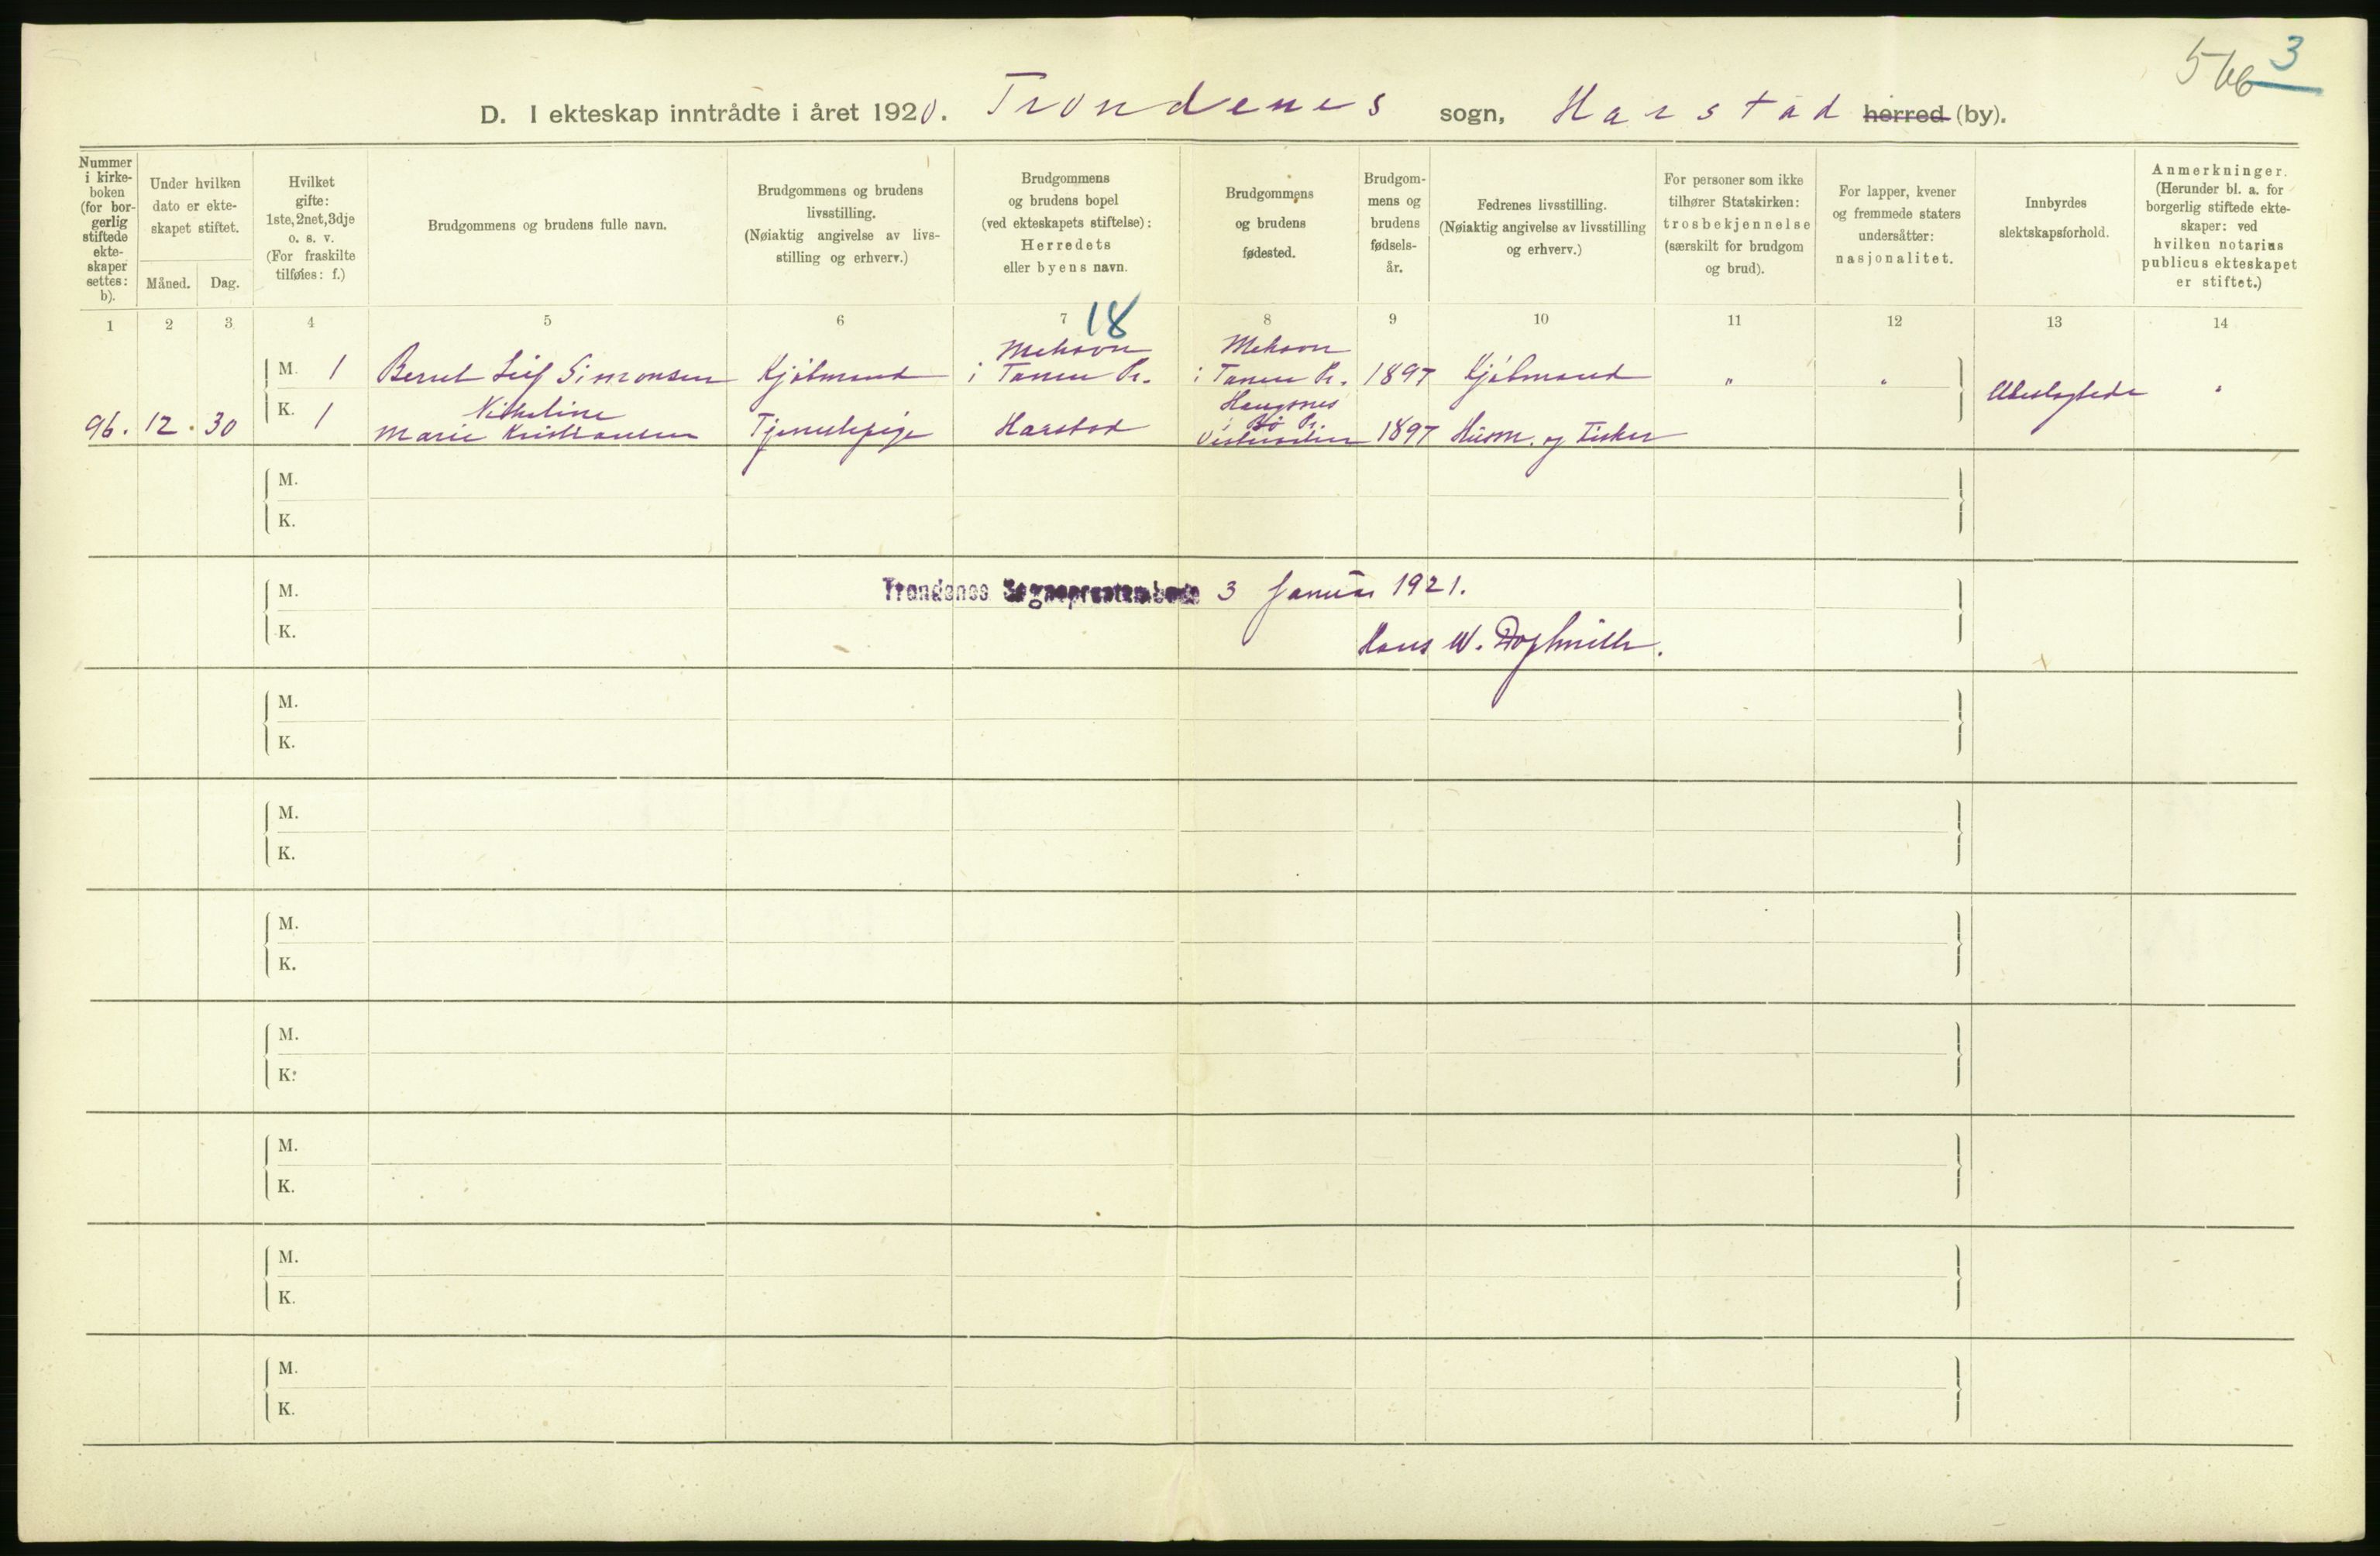 566 3
D. I ekteskap inntrådte i året 1920. Trondenes sogn, Harstad herred (by).
Nummer i kirke-boken (for bor-gerlig stiftede ekte-skaper settes: b).
Under hvilken dato er ekte-skapet stiftet.
Måned. Dag.
Hvilket gifte: 1ste, 2net, 3dje o. s. v. (For fraskilte tilføies: f.)
Brudgommens og brudens fulle navn.
Brudgommens og brudens livsstilling. (Nøiaktig angivelse av livs-stilling og erhverv.)
Brudgommens og brudens bopel (ved ekteskapets stiftelse): Herredets eller byens navn.
Brudgommens og brudens fødested.
Brudgom-mens og brudens fødsels-år.
Fedrenes livsstilling. (Nøiaktig angivelse av livsstilling og erhverv.)
For personer som ikke tilhører Statskirken: trosbekjennelse (særskilt for brudgom og brud).
For lapper, kvener og fremmede staters undersåtter: nasjonalitet.
Innbyrdes slektskapsforhold.
Anmerkninger. (Herunder bl. a. for borgerlig stiftede ekte-skaper: ved hvilken notarius publicus ekteskapet er stiftet.)
1 2 3 4 5 6 7 18 8 9 10 11 12 13 14
Mehavn Mehavn
M. 1 Bernt Leif Simonsen Kjøbmand i Tanen Pr. i Tanen Pr. 1897 Kjøbmand " " Ubeslegtede "
Haugsnes
K. 1 i Bø Pr.
96. 12. 30 Marie Kristiansen Tjenestepige Harstad Vesteraalen 1897 Husm. og Fisker
M.
K.
M. Trondenes Sogneprestembede 3 Januar 1921.
K. Hans W.
M.
K.
M.
K.
M.
K.
M.
K.
M.
K.
M.
K.
M.
K.